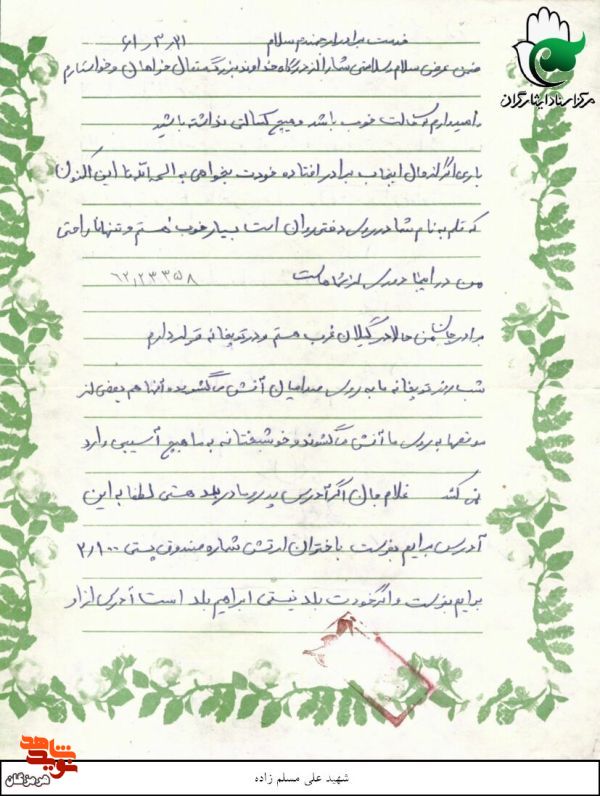 مرکز اسناد ایثارگران
خدمت برادر ارجمندم سلام ۶۱/۳/۲۱
ضمن عرض سلام و سلامتی شما از درگاه خداوند بزرگ متعال خواهان و خواستارم
و امیدوارم که حالت خوب باشد و هیچ کسالتی نداشته باشید
باری اگر از حال اینجانب برادر افتاده خودت بخواهی به الحمدالله تا این اکنون
که قلم به نام شما در روی دفتر روان است بسیار خوب هستم و تنها ناراحتی
من در اینجا دوری از شماست ۶۲/۲۳۳۵۸
برادر جان من حالا در گیلان غرب هستم و در توپخانه قرار دارم
شب و روز توپخانه ما به روی صدامیان آتش می گشوده و آنها هم بعضی از
موقعها به روی ما آتش می گشوند و خوشبختانه به ما هیچ آسیبی وارد
نمی کند غلام جان اگر آدرس پدر و مادر بلد هستی لطفا به این
آدرس برایم بفرست باختران ارتش شماره صندوق پستی ۲/۱۰۰
برایم بفرست و اگر خودت بلد نیستی ابراهیم بلد است آدرس از او
نوید شاهد
هرمزگان
شهید علی مسلم زاده